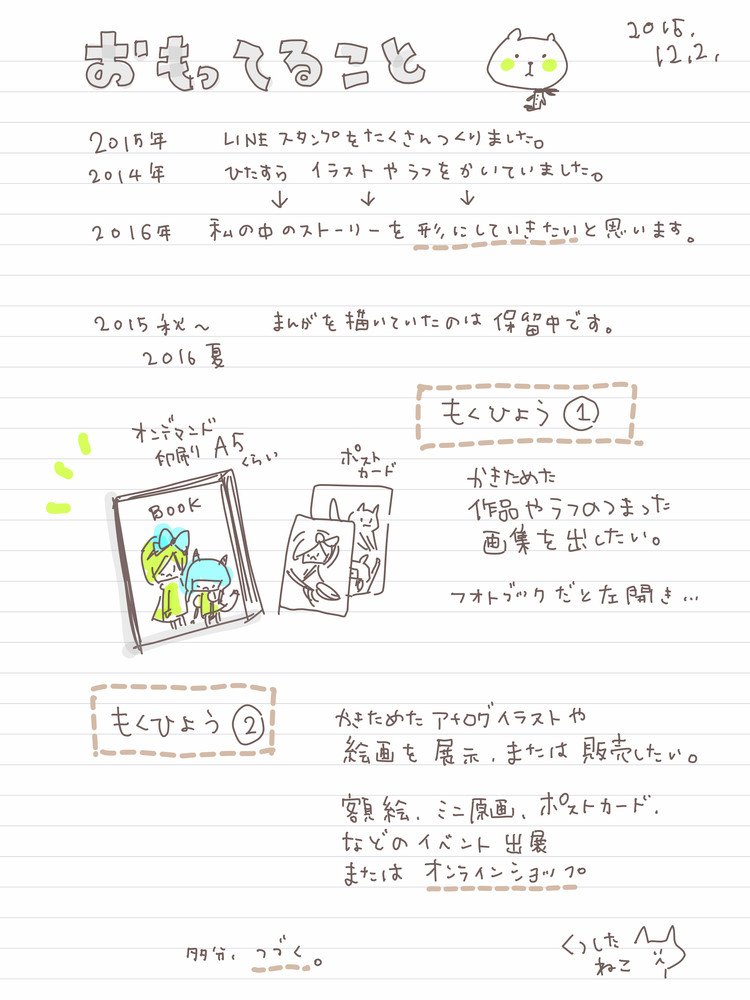 おもってること
2015.
12.2.
2015年 LINEスタンプをたくさんつくりました。
2014年 ひたすら イラストやラフをかいていました。
↓ ↓ ↓
2016年 私の中のストーリーを形にしていきたいと思います。
2015秋〜 まんがを描いていたのは保留中です。
2016夏
もくひょう①
オンデマンド
印刷り A5
くらい
ポスト
カード
BOOK
かきためた
作品やラフのつまった
画集を出したい。
フォトブックだと左開き…
もくひょう②
かきためたアナログイラストや
絵画を展示、または販売したい。
額絵、ミニ原画、ポストカード、
などのイベント出展
または オンラインショップ
多分、つづく。
くつした
ねこ